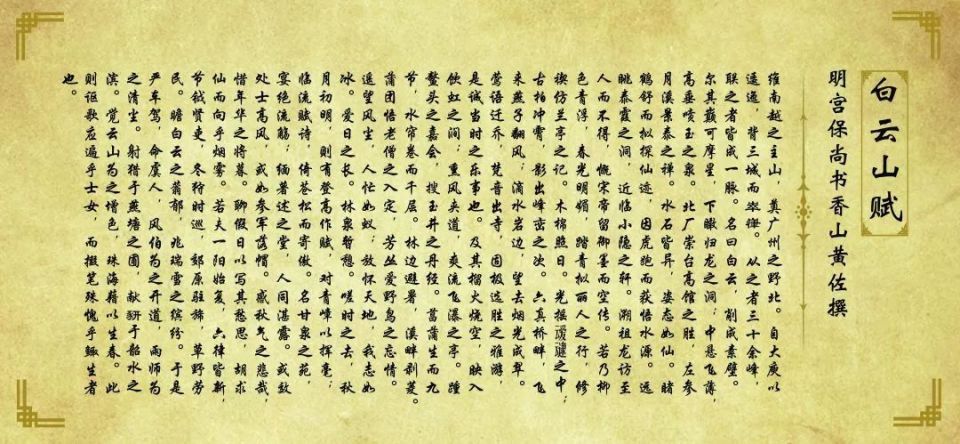 白云山赋
明宫保尚书香山黄佐撰
维南越之主山，奠广州之野北。自大庾以
逶迤，背三城而崒嵂。从之者三十余峰，
联之者皆成一脉。名曰白云，削成素壁。
尔其巅可摩星，下瞰归龙之洞；中悬飞薄，
高垂喷玉之泉。北厂崇台高馆之胜，左参
月溪景泰之禅。水石皆异，姿态如仙。睹
鹤舒而拟探仙迹，因虎跑而获悟水源。远
眺泰霞之洞，近临小隐之轩。溯祖龙访至
人而不得，慨宋帝留御墨而空传。若乃柳
色青浮，春光明媚，踏青拟丽人之行，修
禊仿兰亭之记。木棉照日，光摇之中；
古柏冲霄，影出峰峦之次。六真桥畔，飞
来燕子翻风；滴水岩边，望去烟光成翠。
莺语迁乔，梵音出寺，固极选胜之雅游，
是诚当时之乐事也。及其榴火烧空，映入
饮虹之涧，熏风夹道，爽流飞瀑之亭。踵
鳌头之嘉会，搜玉井之丹经。菖蒲生而九
节，水帘卷而千层。林边避暑，溪畔剥菱。
蒲团悟老僧之入定，芳丛爱野鸟之忘情。
遥望风尘，人忙如蚁；放怀天地，我志如
冰。爱日之长，林泉暂憩。嗟时之去，秋
月初明，则有登高作赋，对青嶂以挥毫；
临流赋诗，倚苍松而寄傲。名甘泉之苑，
宴绝流觞；缅著述之堂，人同湛露。或效
处士高风，或如参军落帽。感秋气之悲哉，
惜年华之将暮。聊假日以写其愁思，胡求
仙而向乎烟雾。若夫一阳始复，六律皆新，
节钺贤吏，冬狩时巡，郊原驻稀，草野劳
民。瞻白云之蓊郁，兆瑞雪之缤纷。于是
严车驾，命虞人，风伯为之开道，雨师为
之清尘。射猎于燕塘之圃，献豜于韶水之
滨。觉云山为之增色，珠海藉以生春。此
则讴歌应遍乎士女，而掇笔殊愧乎鲰生者
也。